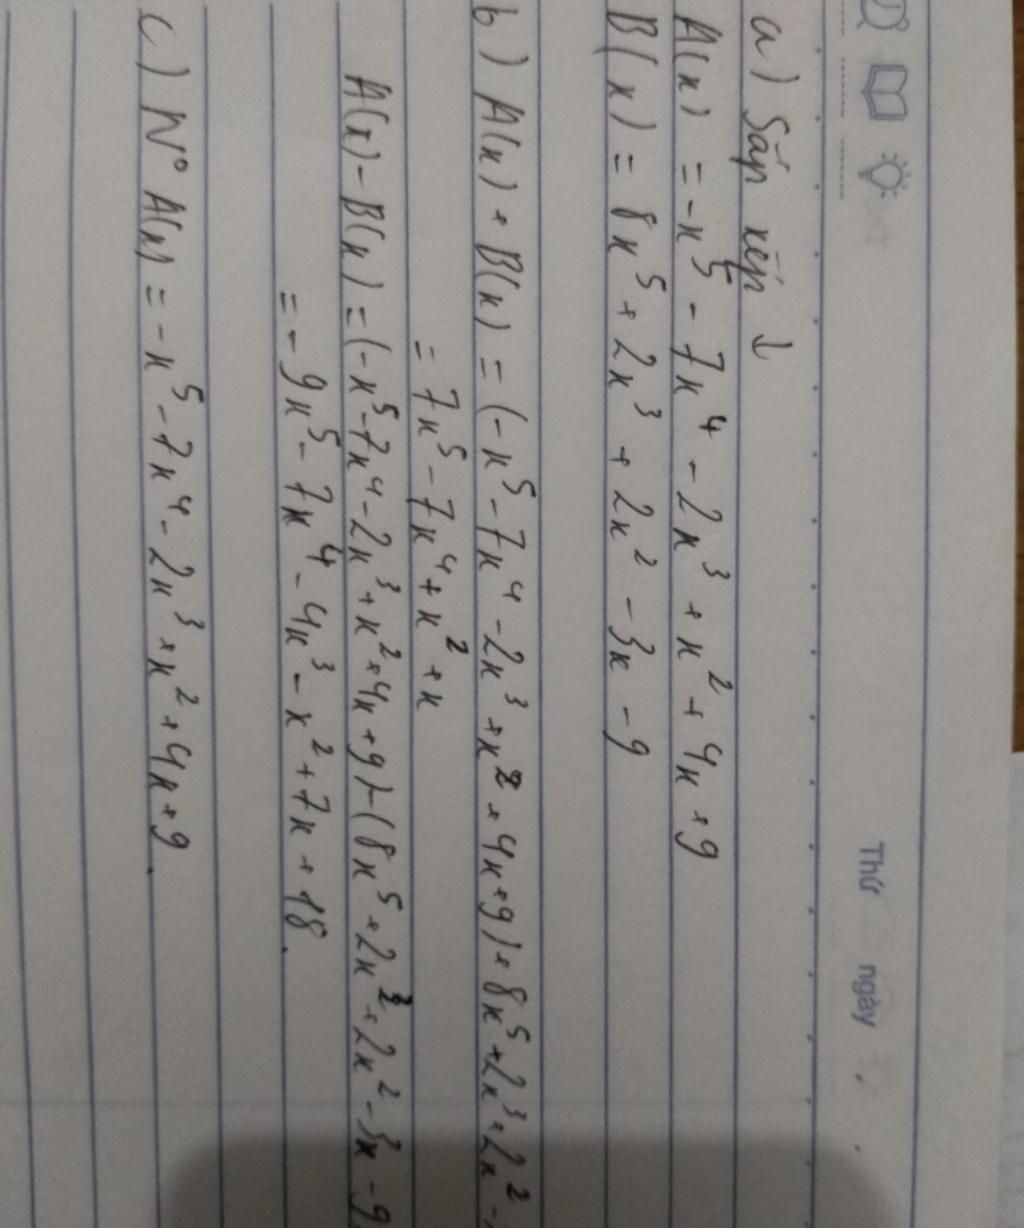 Thứ ngày
a) Sắp xếp ↓
A(x) = -x⁵ - 7x⁴ - 2x³ + x² + 4x + 9
B(x) = 8x⁵ + 2x³ + 2x² - 3x - 9
b) A(x) + B(x) = (-x⁵ - 7x⁴ - 2x³ + x² + 4x + 9) + 8x⁵ + 2x³ + 2x² -
= 7x⁵ - 7x⁴ + x² + x
A(x) - B(x) = (-x⁵ - 7x⁴ - 2x³ + x² + 4x + 9) - (8x⁵ + 2x³ + 2x² - 3x - 9
= -9x⁵ - 7x⁴ - 4x³ - x² + 7x + 18.
c) N° A(x) = -x⁵ - 7x⁴ - 2x³ + x² + 4x + 9.